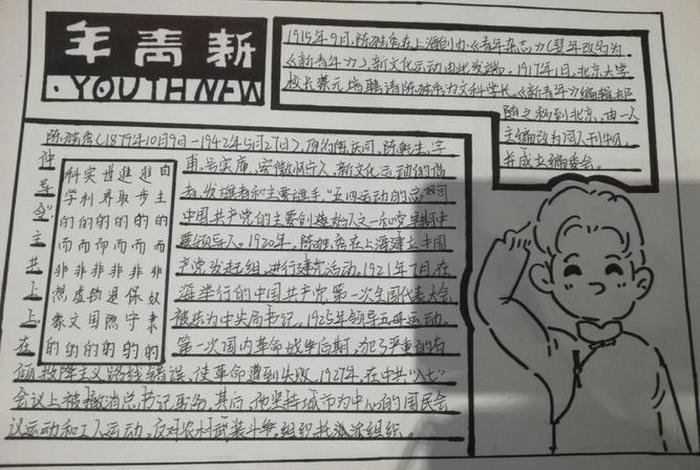 年青新
YOUTH NEW
1915年9月,陈独秀在上海创办《青年杂志》(翌年改名为
《新青年》),新文化运动由此发端。1917年1月,北京大学
校长蔡元培聘请陈独秀为文科学长,《新青年》编辑部
随之移到北京,由一人
主编改为同人刊物,
并成立编委会。
陈独秀(1879年10月9日—1942年5月27日),原名陈庆同,陈乾生,字
仲甫,号实庵,安徽怀宁人,新文化运动的倡
导者,发起者和主要旗手,“五四运动的总司
令”中国共产党的主要创始人之一和党早期主
要领导人。1920年,陈独秀在上海建立中国
共产党发起组,进行建党活动。1921年7月在
上海举行的中国共产党第一次全国代表大会
上被选为中央局书记。1925年领导五卅运动。
在第一次国内革命战争后期,犯了严重的右
倾投降主义路线错误,使革命遭到失败。1927年,在中共“八七”
会议上被撤消总书记职务。其后,他坚持城市为中心的国民会
议运动和工人运动,反对农村武装斗争,组织托派组织。
科实世进进自
学利界取步主
的的的的的的
而而而而而而
非非非非非非
想虚锁退保奴
象文国隐守隶
的的的的的的